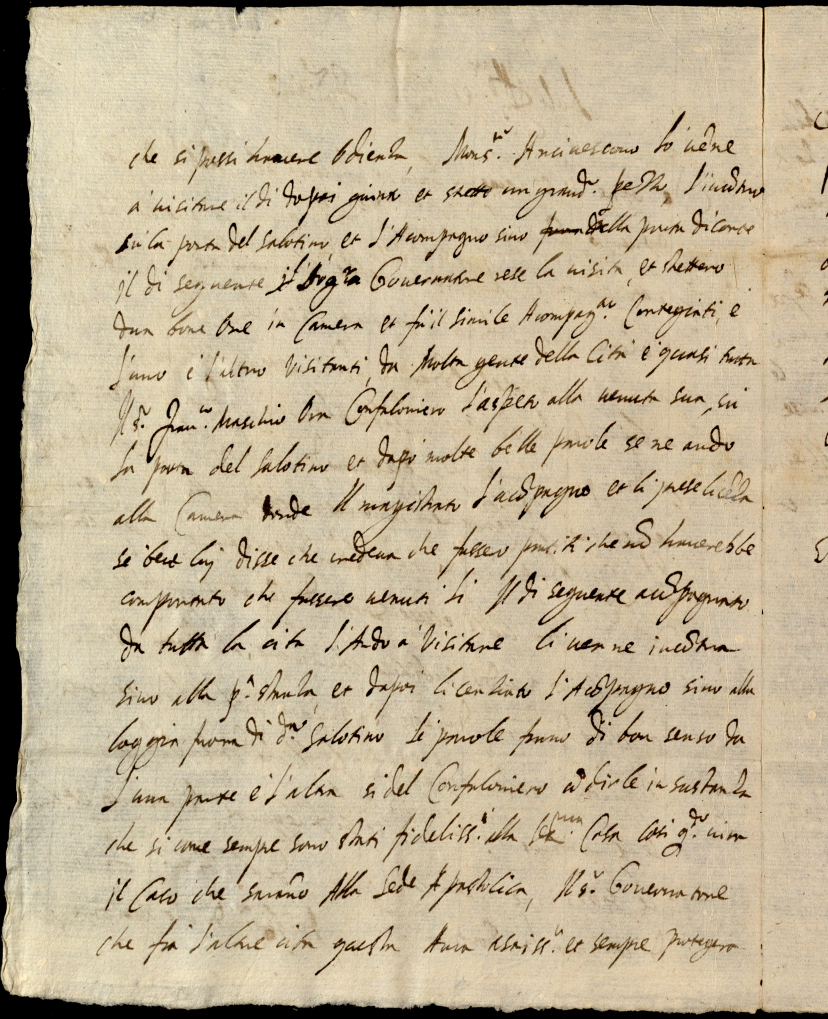 che si possi havere Udienza, Mons.r Arcivescovo lo vene
a visitare il di dopoi giunto et stette un grand.o pezzo, l'incontro
su la porta del Salotino et l'Acompagno sino alla porta di corte
il di seguente il Sig.r Governatore rese la visita, et stettero
dua bone Ore in Camera et fu il simile Acompag.to Corteggiati, e
l'uno e l'altro Visitanti, da Molta gente della Cità e quasi tutta
Il S.r Fran.co Maschio Ora Confaloniero l'aspeto alla venuta sua, su
la porta del Salotino et dopo molte belle parole se ne ando
alla Camera dande Il magistrato l'acompagno et li prese licenza
se bene lui disse che credeva che fussero partiti che non haverebbe
comportato che fussero venuti li Il di seguente acompagnato
da tutta la cita l'Ando a Visitare li venne incontra
sino alla p.a stanza, et dapoi licentiato l'Acompagno sino alla
loggia fuora di d.o Salotino le parole furno di bon senso da
l'una parte e l'altra si del Confaloniero con dirle in sustanza
che si come sempre sono stati fideliss.i alla Ser.ma Casa Cosi q.do viva
il Caso che sarano Alla Sede Apostolica, Il S.r Governatore
che fra l'altre cita questa Ama assaiss.o et sempre protegera